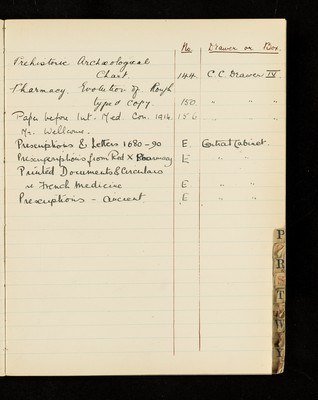 No. Drawer or Box.
Prehistoric Archæological
Chart. 144. C.C. Drawer IV.
Pharmacy. Evolution of Rough
typed copy. 150. " " "
Paper before Int. Med. Con. 1914. 156 " " "
Mr. Wellcome.
Prescriptions & Letters 1680-90 E. Contract Cabinet.
from Red X Pharmacy E " "
Printed Documents & Circulars
re French Medicine E. " "
Prescriptions - ancient. E " "
P
R
S
T
W
Y